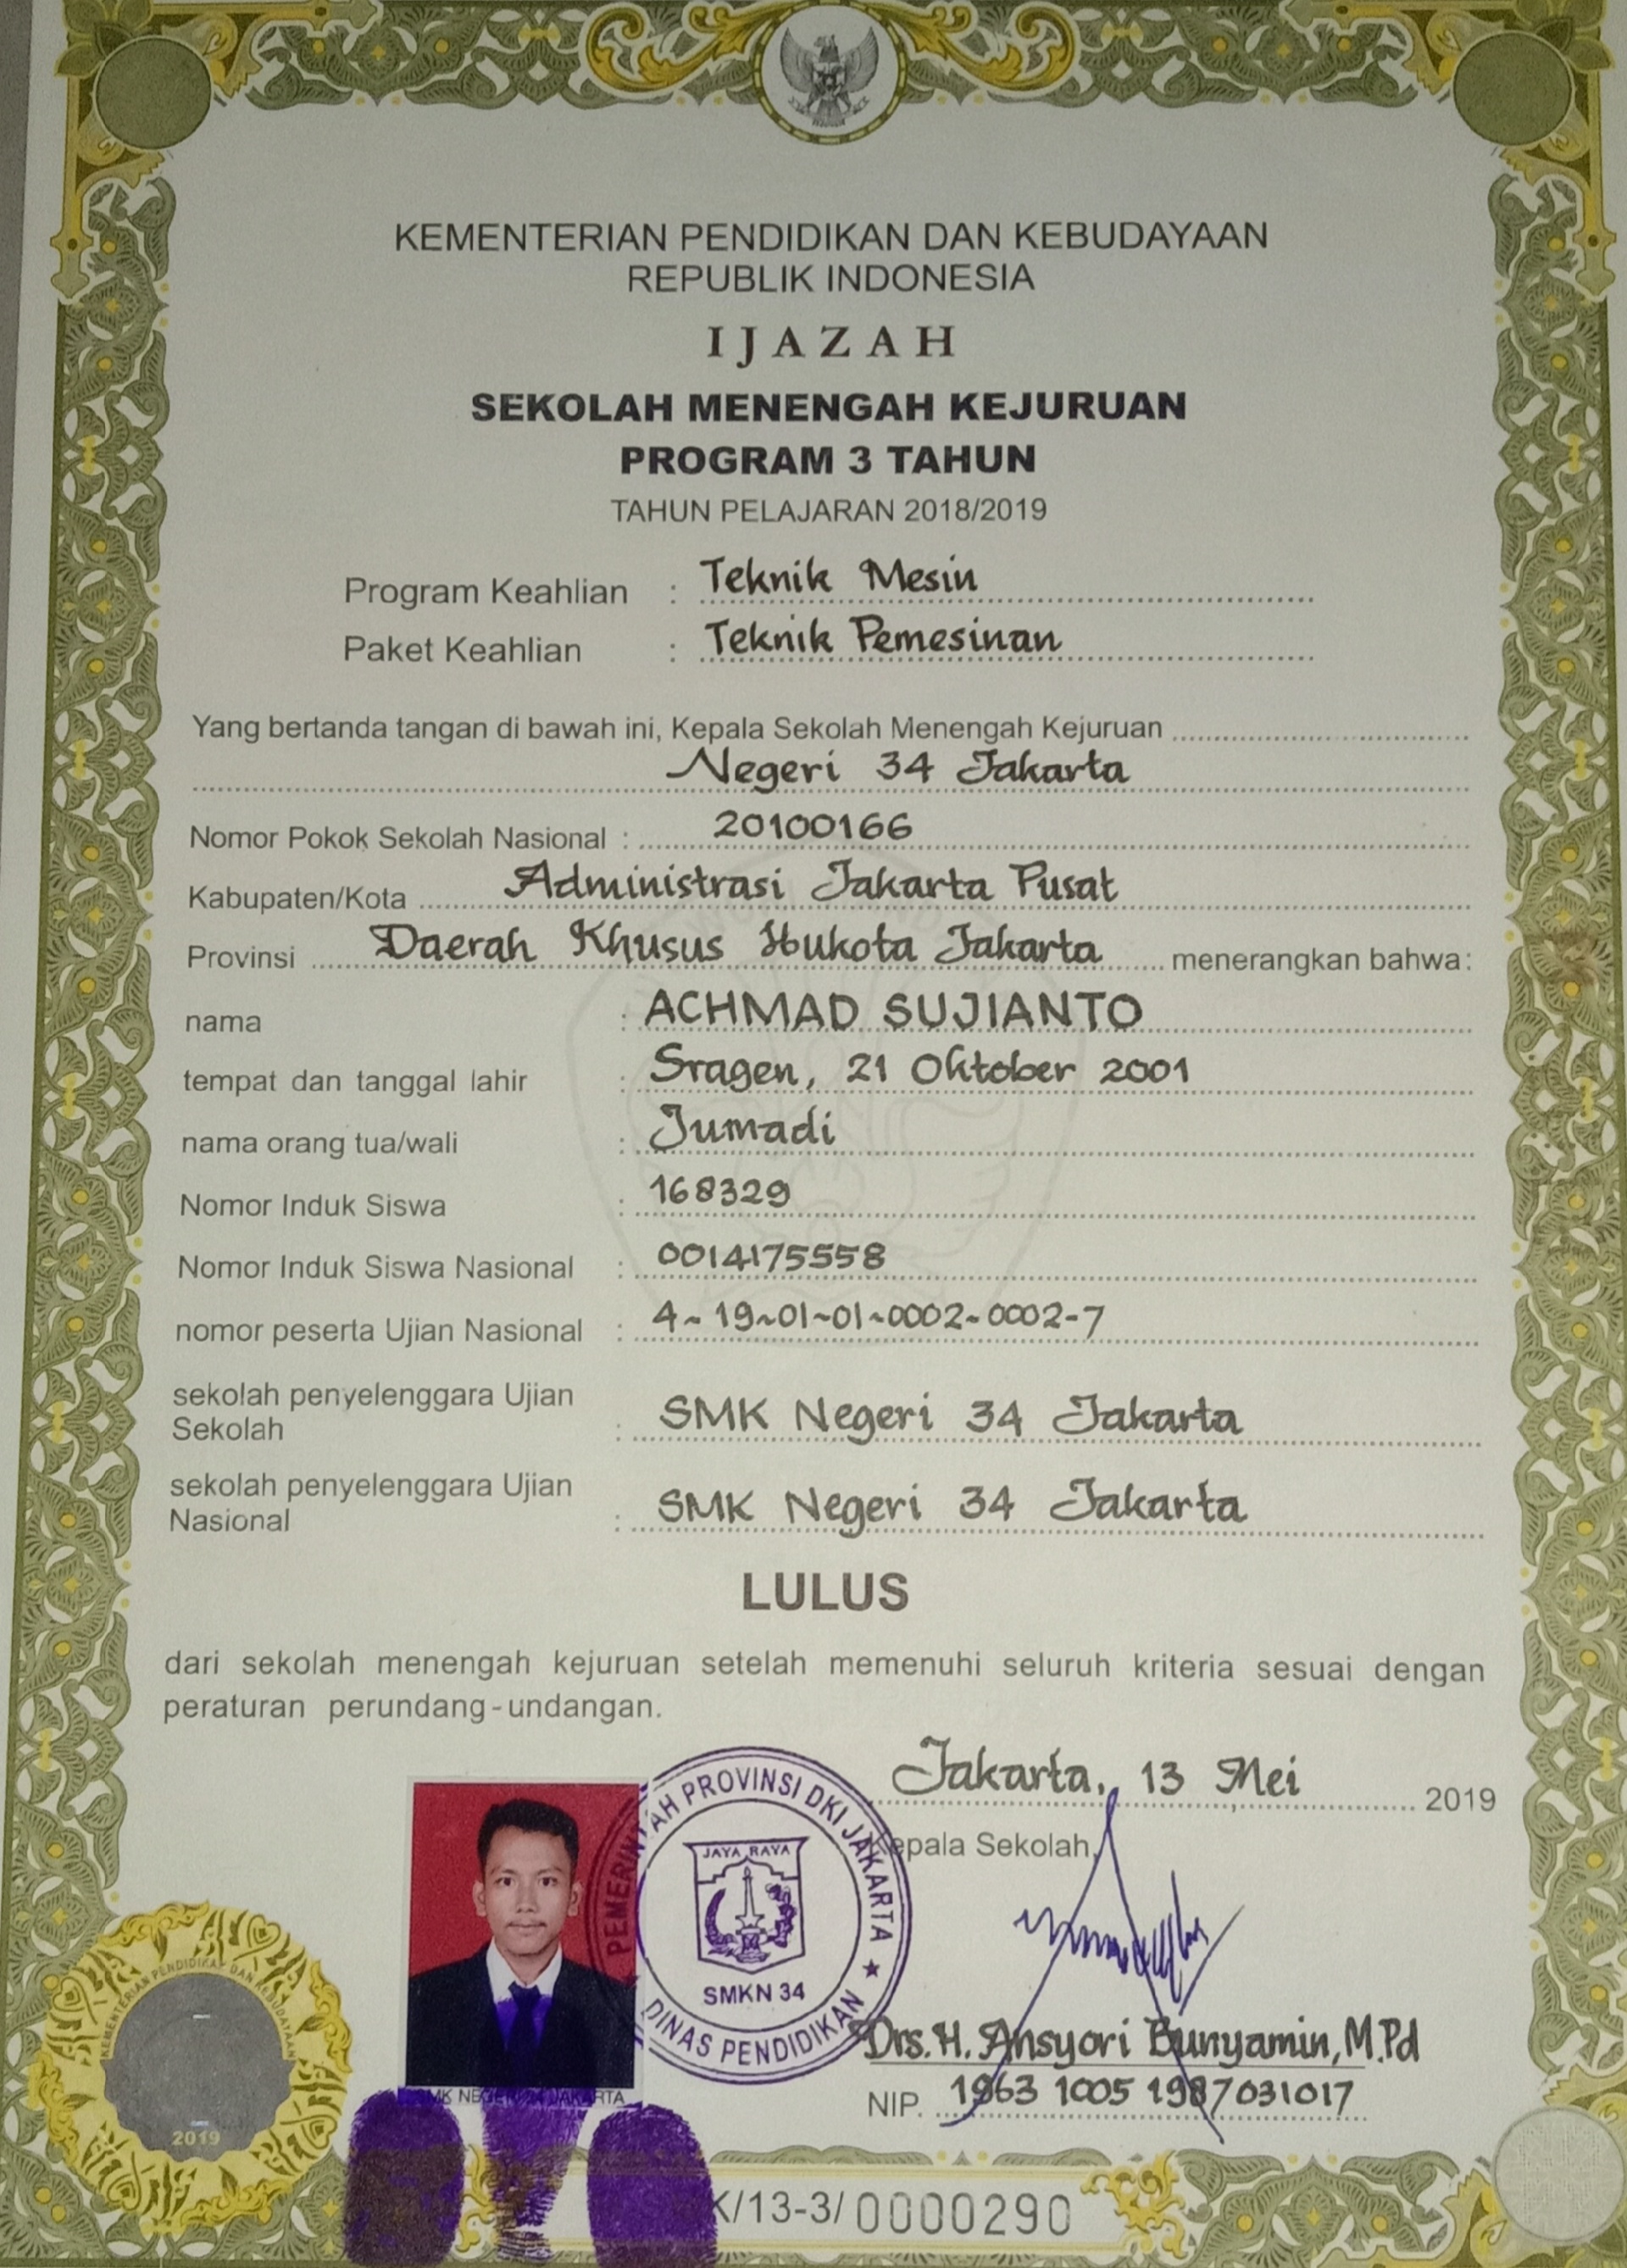 KEMENTERIAN PENDIDIKAN DAN KEBUDAYAAN
REPUBLIK INDONESIA
IJAZAH
SEKOLAH MENENGAH KEJURUAN
PROGRAM 3 TAHUN
TAHUN PELAJARAN 2018/2019
Program Keahlian : Teknik Mesin
Paket Keahlian : Teknik Pemesinan
Yang bertanda tangan di bawah ini, Kepala Sekolah Menengah Kejuruan
Negeri 34 Jakarta
Nomor Pokok Sekolah Nasional : 20100166
Kabupaten/Kota Administrasi Jakarta Pusat
Provinsi Daerah Khusus Ibukota Jakarta menerangkan bahwa:
nama : ACHMAD SUJIANTO
tempat dan tanggal lahir : Sragen, 21 Oktober 2001
nama orang tua/wali : Jumadi
Nomor Induk Siswa : 168329
Nomor Induk Siswa Nasional : 0014175558
nomor peserta Ujian Nasional : 4-19-01-01-0002-0002-7
sekolah penyelenggara Ujian
Sekolah : SMK Negeri 34 Jakarta
sekolah penyelenggara Ujian
Nasional : SMK Negeri 34 Jakarta
LULUS
dari sekolah menengah kejuruan setelah memenuhi seluruh kriteria sesuai dengan
peraturan perundang-undangan.
Jakarta, 13 Mei 2019
Kepala Sekolah,
PEMERINTAH PROVINSI DKI JAKARTA
JAYA RAYA
SMKN 34
DINAS PENDIDIKAN
Drs. H. Ansyori Bunyamin, M.Pd
NIP. 1963 1005 1987031017
SMK NEGERI 34 JAKARTA
KEMENTERIAN PENDIDIKAN DAN KEBUDAYAAN
2019
K/13-3/ 0000290